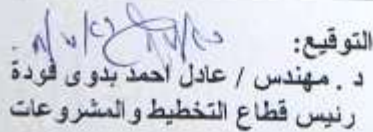 التوقيع:
د. مهندس / عادل احمد بدوى فودة
رئيس قطاع التخطيط والمشروعات